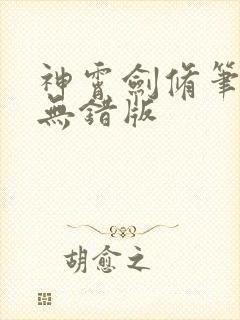 神霄劍脩筆
無錯版
胡愈之